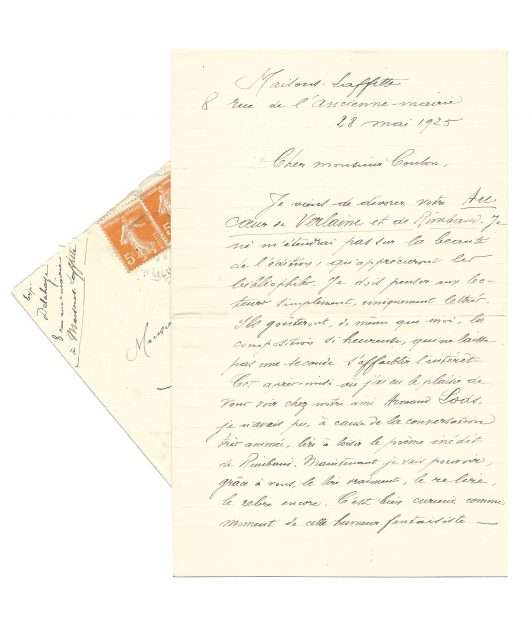 Maisons-Laffitte
8 rue de l'Ancienne-mairie
28 mai 1925
Cher monsieur Coulon,
Je viens de dévorer votre Au
cœur de Verlaine et de Rimbaud. Je
ne m'étendrai pas sur la beauté
de l'édition, qu'apprécieront les
bibliophiles. Je dois penser aux lec-
teurs simplement, uniquement lettrés.
Ils goûteront, de même que moi, la
composition si heureuse, qui ne laisse
pas une seconde s'affaiblir l'intérêt.
Cet après-midi où j'ai eu le plaisir de
vous voir chez notre ami Armand Lods,
je n'avais pu, à cause de la conversation
très animée, lire à loisir le poème inédit
de Rimbaud. Maintenant je vais pouvoir,
grâce à vous, le lire vraiment, le relire,
le relire encore. C'est bien curieux comme
moment de cette humeur fantaisiste —
Exp.
Delahaye
8 rue anc-mairie
à Maisons-Laffitte
5